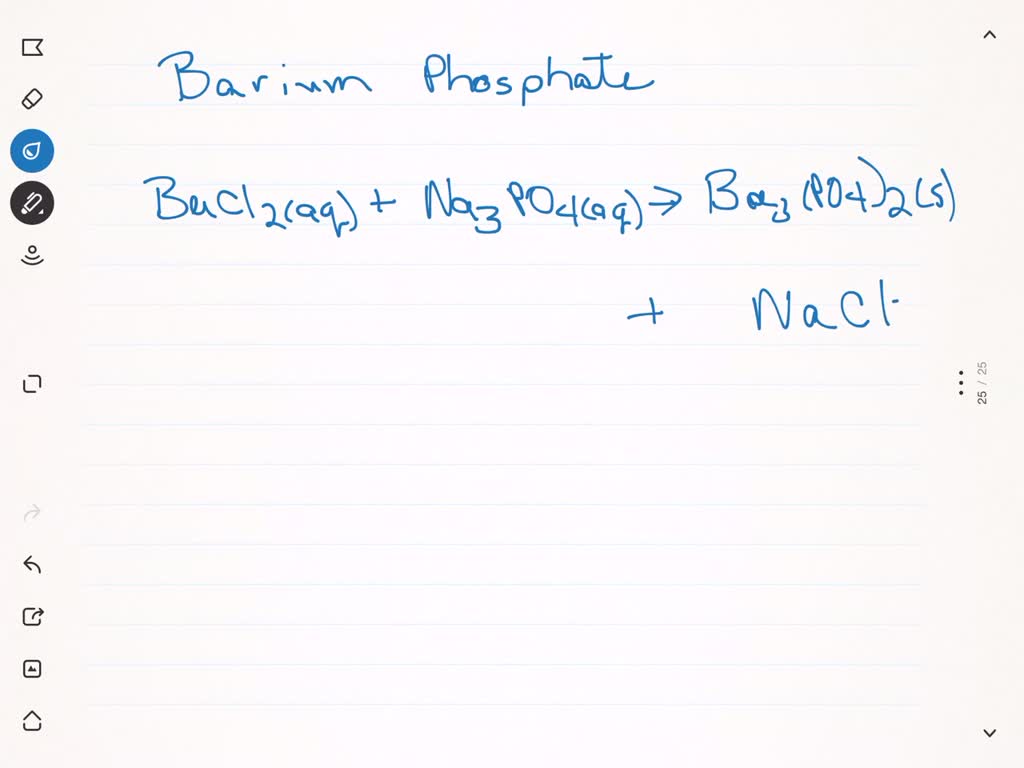 Barium Phosphate
BaCl2(aq) + Na3PO4(aq) → Ba3(PO4)2(s)
+ NaCl
25 / 25